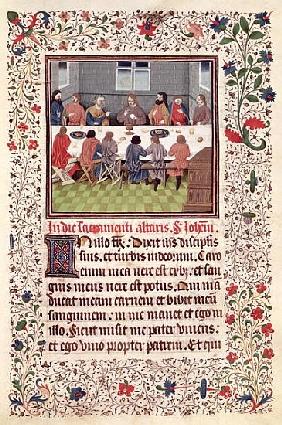 In die sacramenti altaris. S. Iohem
In illo tpr. Dixit ihs discipls
suis, et turbis iudeorum. Caro
enim mea vere est cib9. et san
guis meus vere est potus. Qui ma
ducat meam carnem et bibit meū
sanguinem. in me manet et ego in
illo. Sicut misit me pater vivens.
et ego vivo propter patrem. Et qui